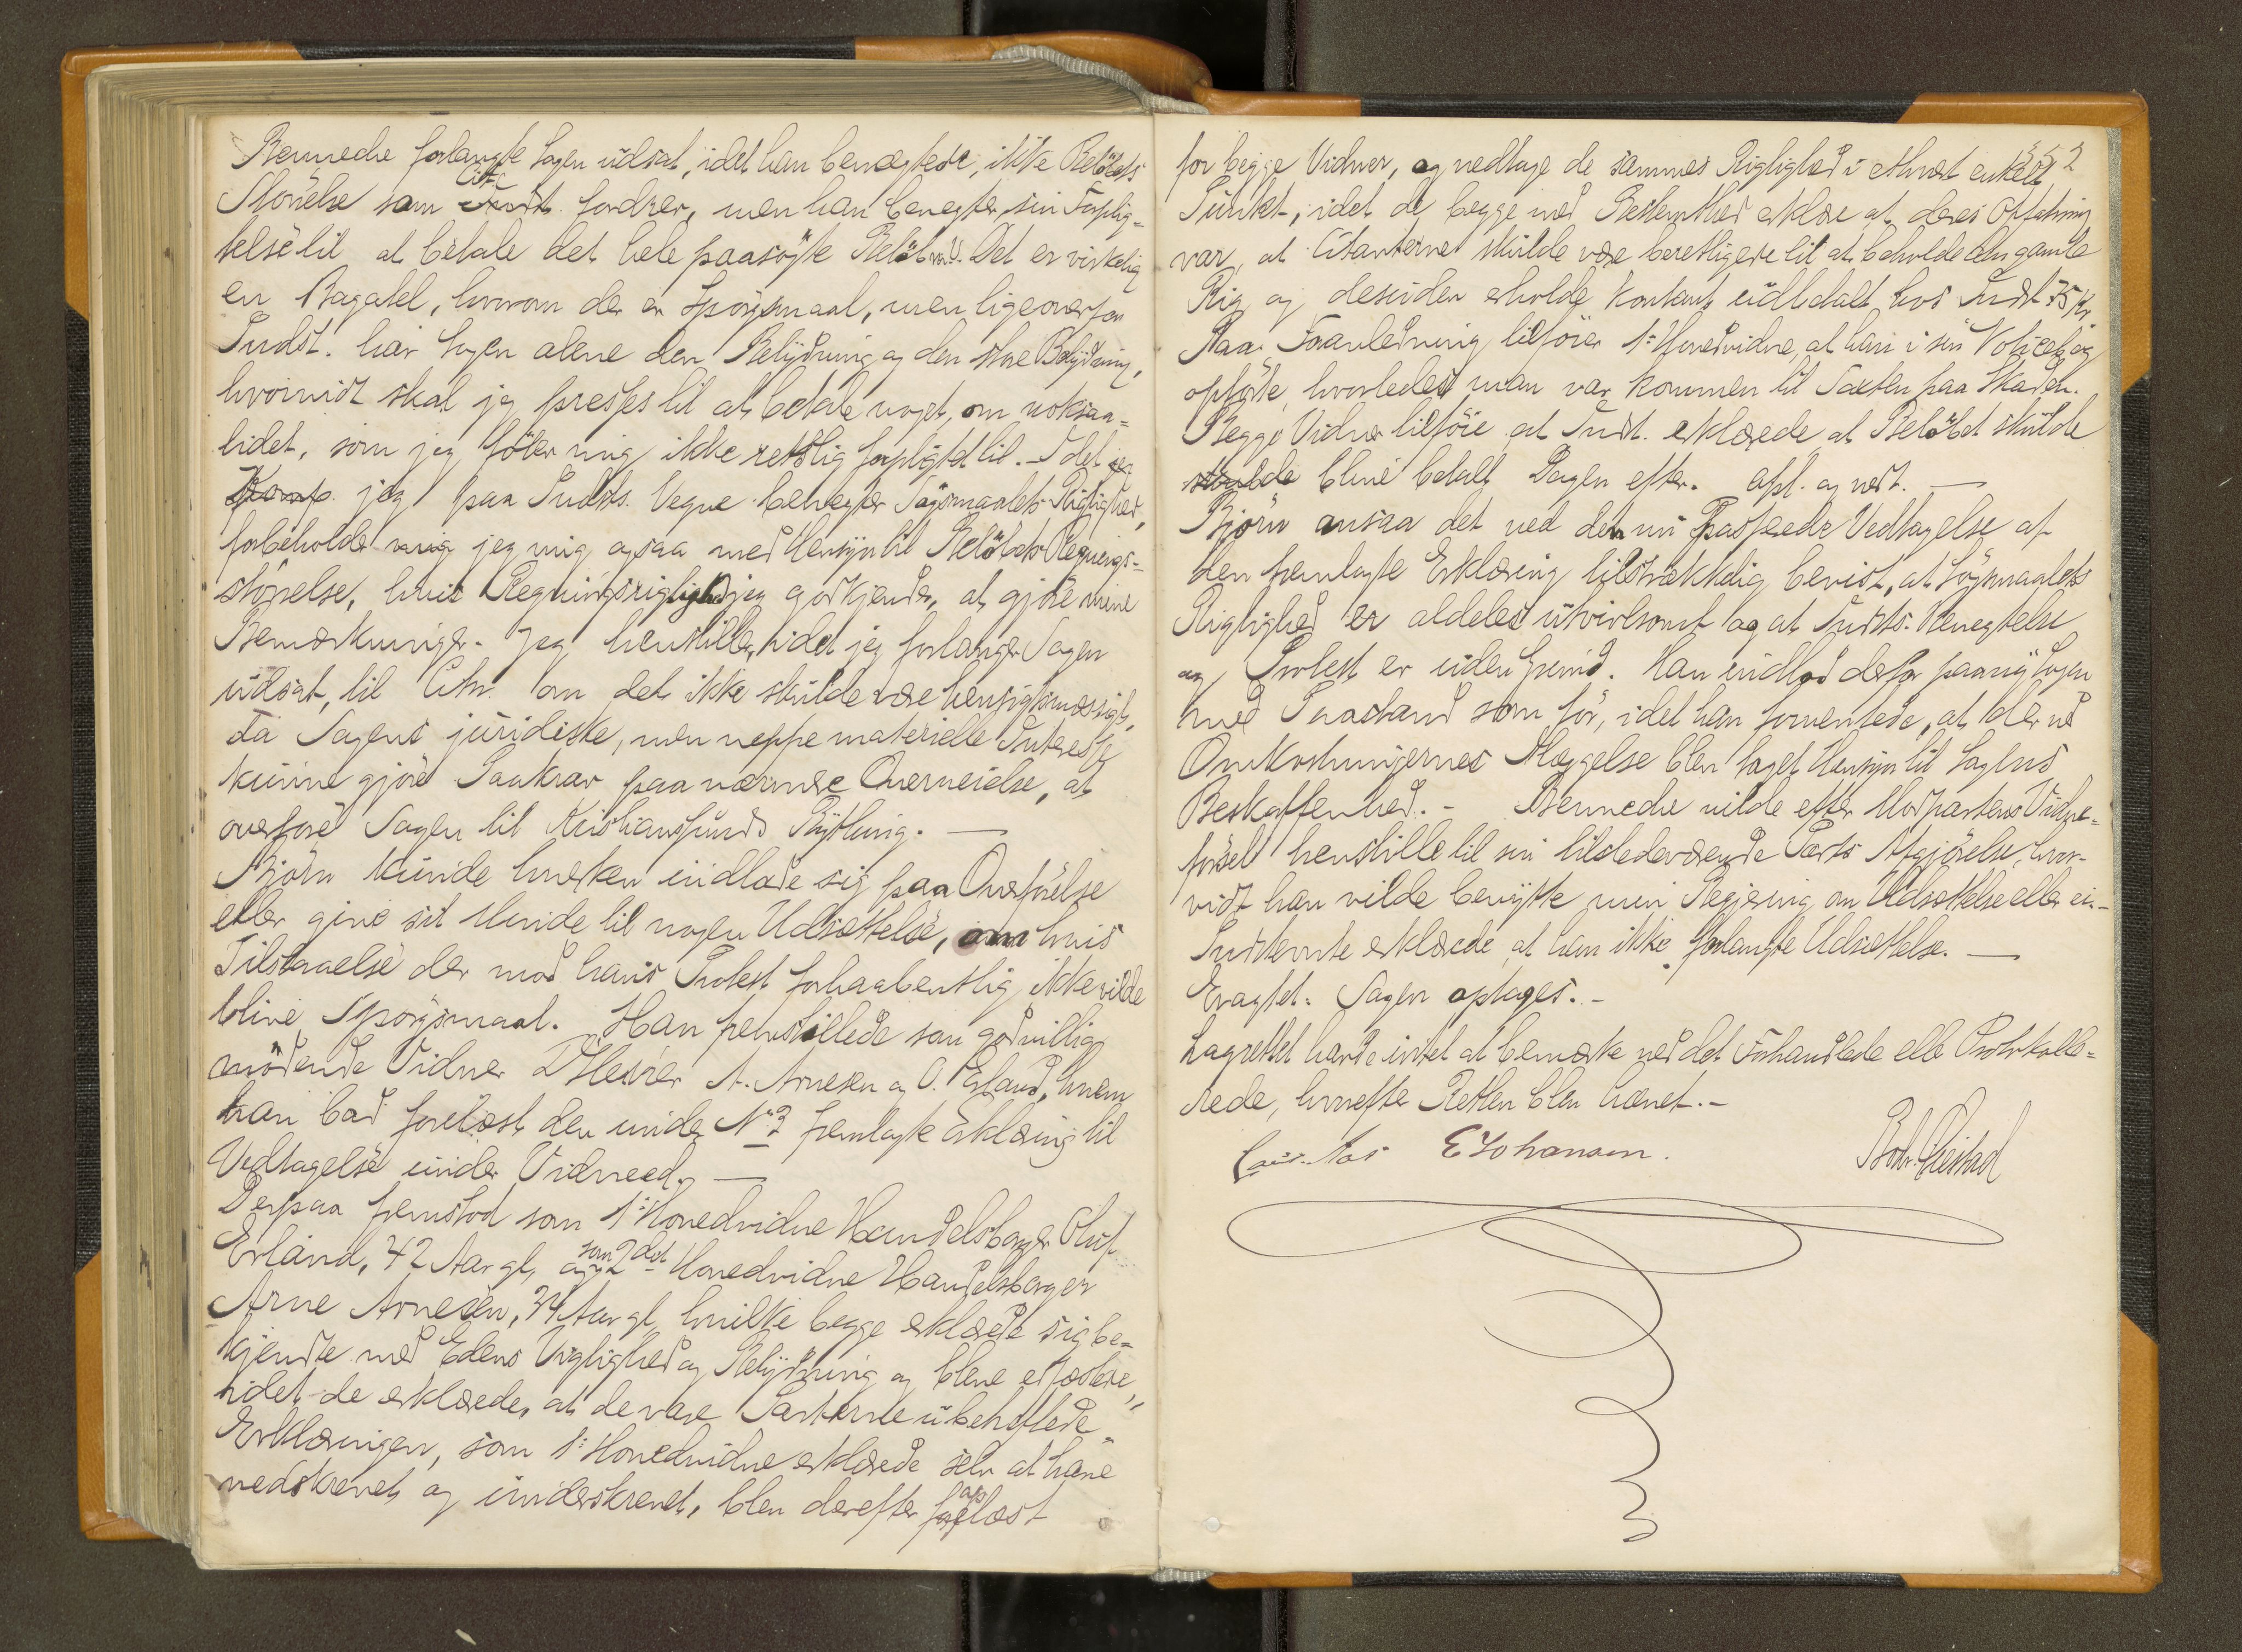 Benneche forlangte Sagen udsat, idet han benegtede, ikke Beløbets
Størrelse som Citc fordrer, men han benegter sin Forplig=
telse til at betale det hele paasøgte Beløb m.V. Det er virkelig
en Bagatel, hvorom der er Spørgsmaal, men ligeoverfor
Indst. har Sagen alene den Betydning og den store Betydning,
hvorvidt skal jeg presses til at betale noget, om noksaa=
lidet, som jeg føler mig ikke retslig forpligtet til. - Idet
jeg paa Indsts. Vegne benegter Søgsmaalets Rigtighed,
forbeholder jeg mig ogsaa med Hensyn til Beløbets Regnings=
størrelse, hvis Regningsrigtighed jeg godkjender, at gjøre mine
Bemærkninger. Jeg henstiller, idet jeg forlanger Sagen
udsat, til Citn. om det ikke skulde være hensigtsmæssigt,
da Sagens juridiske, men neppe materielle Interesse
kunne gjøre Paakrav paa nærmere Overveielse, at
overføre Sagen til Kristiansunds Bything. —
Bjørn kunde hverken indlade sig paa Overførelse
eller give sit Minde til nogen Udsættelse, om hvis
Tilstaaelse der mod hans Protest forhaabentlig ikke vilde
blive Spørgsmaal. Han fremstillede som godvillig
mødende Vidner DHerrer A. Arnesen og O. Erland, hvem
han bad forelæst den under No 2 fremlagte Erklæring til
Vedtagelse under Vidneed. —
Derpaa fremstod som 1ste Hovedvidne Handelsborger Oluf
Erland, 42 Aar gl, og som 2det Hovedvidne Handelsborger
Arne Arnesen, 34 Aar gl, hvilke begge erklærede sig be=
kjendte med Edens Vigtighed og Betydning og bleve edfæstede,
idet de erklærede, at de vare Parterne ubeheftede.
Erklæringen, som 1ste Hovedvidne erklærede selv at have
nedskrevet og underskrevet, blev derefter oplæst
for begge Vidner, og vedtage de sammes Rigtighed i ethvert enkelt
Punkt, idet de begge med Bestemthed erklære at deres Opfatning
var, at Citanterne skulde være berettigede til at beholde den gamle
Rig og desuden erholde kontant udbetalt hos Indst 75 Kr
Paa Foranledning tilføier 1ste Hovedvidne, at han i sin Noticebog
opførte, hvorledes man var kommen til Taxten paa Skaden.
Begge Vidner tilføie at Indst. erklærede at Beløbet skulde
skulde blive betalt Dagen efter. Opl. og vedt. —
Bjørn ansaa det ved den nu passerede Vedtagelse af
den fremlagte Erklæring tilstrækkelig bevist, at Søgsmaalets
Rigtighed er aldeles utvivlsomt og at Indsts. Benegtelse
og Protest er uden Grund. Han indlod derfor paany Sagen
med Paastand som før, idet han forventede, at der ved
Omkostningernes Ilæggelse blev taget Hensyn til Sagens
Beskaffenhed. - Benneche vilde efter Modpartens Vidne=
førsel henstille til sin tilstedeværende Parts Afgjørelse, hvor-
vidt han vilde benytte min Begjæring om Udsættelse eller ei.-
Indstevnte erklærede at han ikke forlangte Udsættelse. —
Eragtet: Sagen optages. -
Lagrettet havde intet at bemærke ved det Forhandlede eller Protokolle=
rede, hvorefter Retten blev hævet. -
E Johansen.